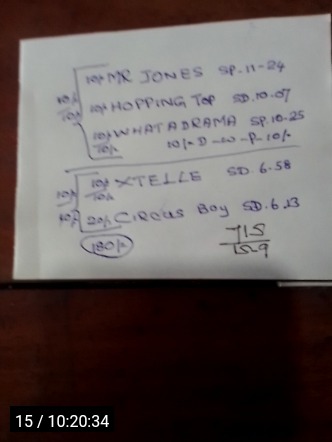 10/- MR JONES SP. 11-24
10/- 10/- HOPPING TOP SD. 10.07
10/- 10/- WHATADRAMA SP. 10.25
10/- 10/- D-W-P-10/-
10/- 10/- XTELLE SD. 6.58
10/-
20/- CIRCUS Boy SD. 6.13
180/- 715
1529
15 / 10:20:34